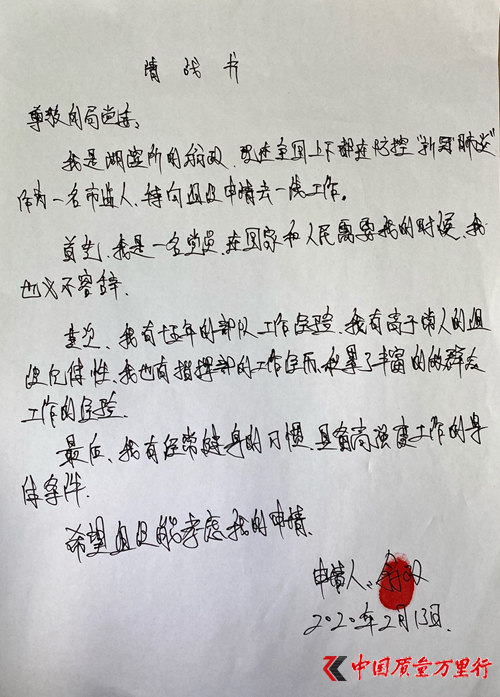 请战书
尊敬的局党委:
我是湖滨所的翁双,现在全国上下都在防控“新冠肺炎”
作为一名市监人,特向组织申请去一线工作。
首先,我是一名党员,在国家和人民需要我的时候,我
也义不容辞.
其次、我有十五年的部队工作经验.我有高于常人的组
织纪律性、我也有指挥部的工作经历,积累了丰富的的群众
工作的经验.
最后、我有经常健身的习惯,具备高强度工作的身
体条件.
希望组织能考虑我的申请.
申请人:翁双
2020年2月13日.
中国质量万里行